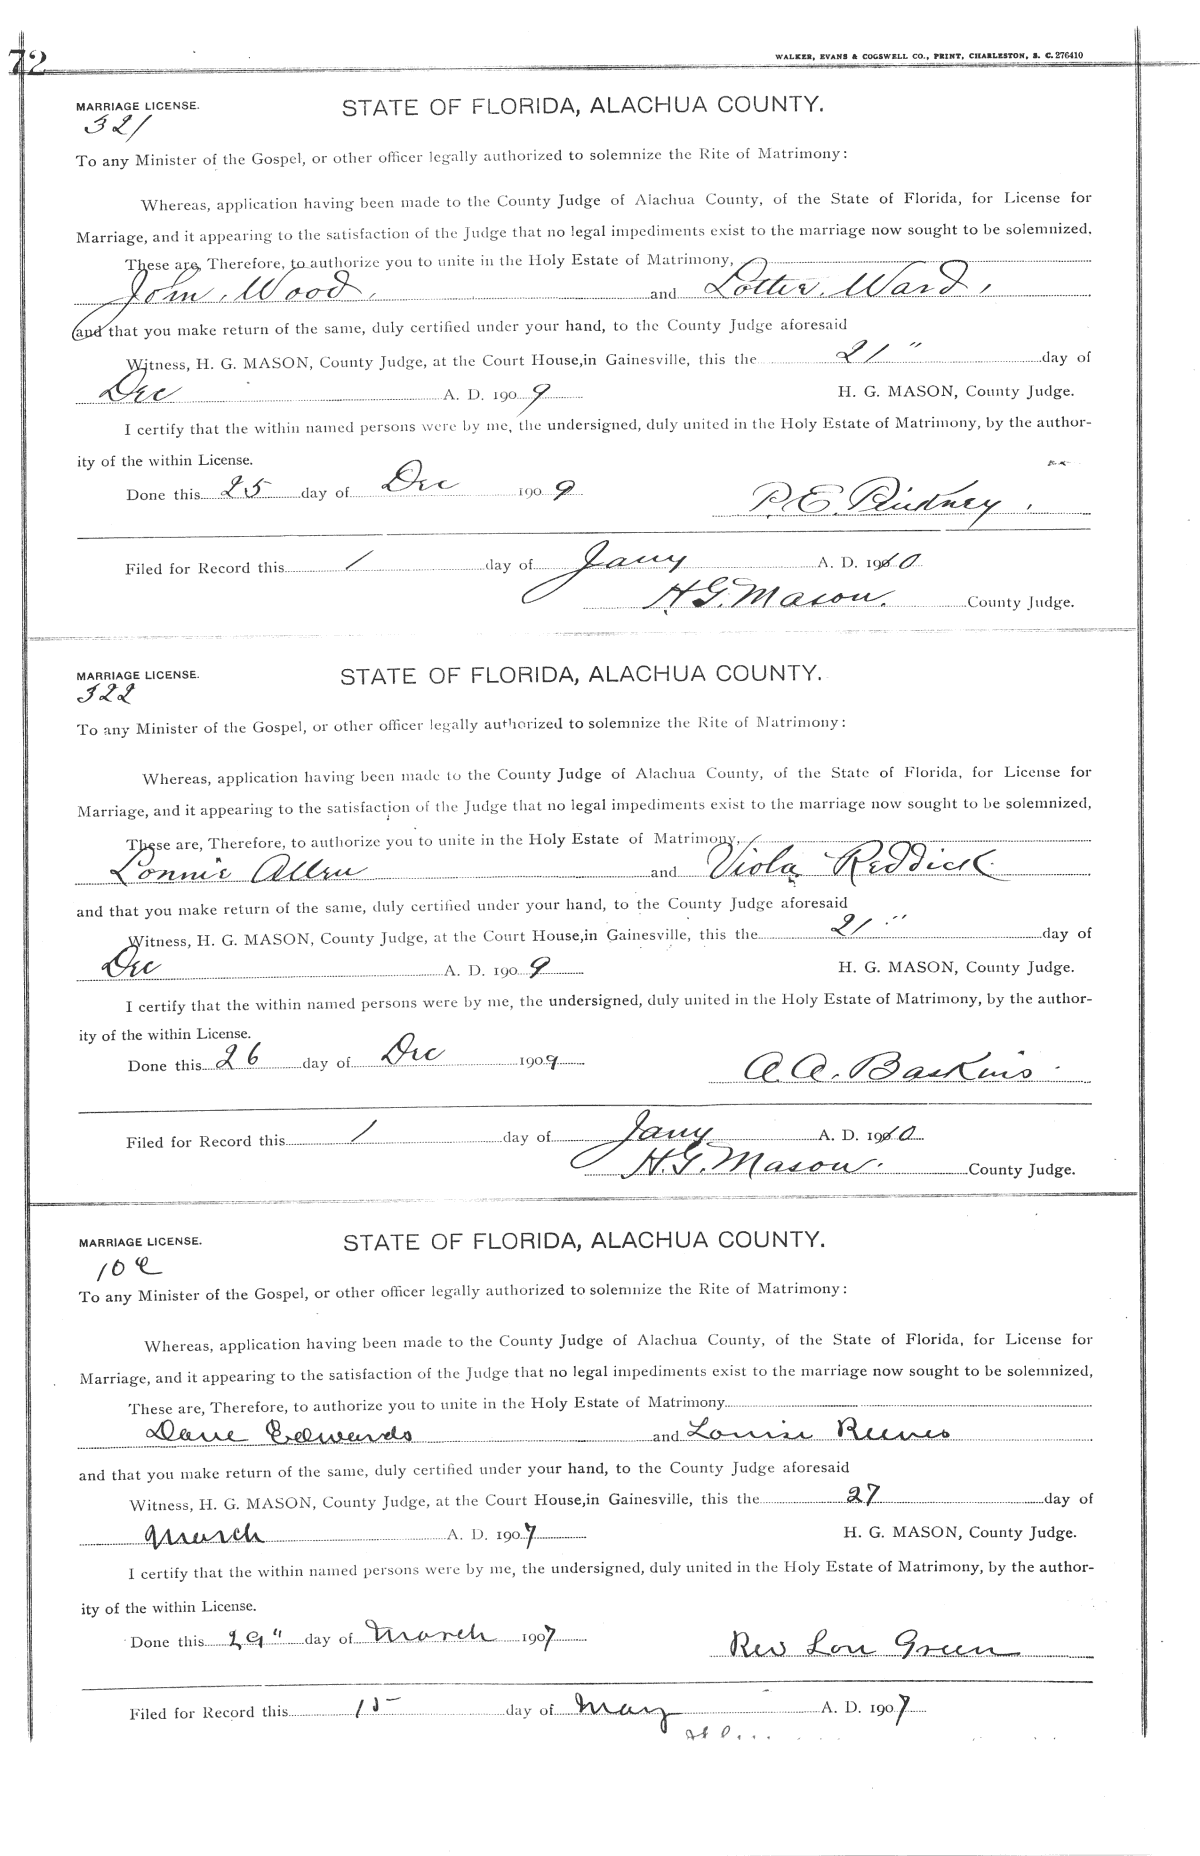 72
WALKER, EVANS & COGSWELL CO., PRINT, CHARLESTON, S. C. 276410
MARRIAGE LICENSE. STATE OF FLORIDA, ALACHUA COUNTY.
321
To any Minister of the Gospel, or other officer legally authorized to solemnize the Rite of Matrimony:
Whereas, application having been made to the County Judge of Alachua County, of the State of Florida, for License for
Marriage, and it appearing to the satisfaction of the Judge that no legal impediments exist to the marriage now sought to be solemnized,
These are, Therefore, to authorize you to unite in the Holy Estate of Matrimony,
John Wood, and Lottie Ward,
and that you make return of the same, duly certified under your hand, to the County Judge aforesaid
Witness, H. G. MASON, County Judge, at the Court House, in Gainesville, this the 21" day of
Dec A. D. 1909 H. G. MASON, County Judge.
I certify that the within named persons were by me, the undersigned, duly united in the Holy Estate of Matrimony, by the author-
ity of the within License.
Done this 25 day of Dec 1909 P. E. Pinkney,
Filed for Record this 1 day of Jany A. D. 1910
H. G. Mason. County Judge.
MARRIAGE LICENSE. STATE OF FLORIDA, ALACHUA COUNTY.
322
To any Minister of the Gospel, or other officer legally authorized to solemnize the Rite of Matrimony:
Whereas, application having been made to the County Judge of Alachua County, of the State of Florida, for License for
Marriage, and it appearing to the satisfaction of the Judge that no legal impediments exist to the marriage now sought to be solemnized,
These are, Therefore, to authorize you to unite in the Holy Estate of Matrimony,
Lonnie Allen and Viola Reddick
and that you make return of the same, duly certified under your hand, to the County Judge aforesaid
Witness, H. G. MASON, County Judge, at the Court House, in Gainesville, this the 21" day of
Dec A. D. 1909 H. G. MASON, County Judge.
I certify that the within named persons were by me, the undersigned, duly united in the Holy Estate of Matrimony, by the author-
ity of the within License.
Done this 26 day of Dec 1909 A. A. Baskins
Filed for Record this 1 day of Jany A. D. 1910
H. G. Mason. County Judge.
MARRIAGE LICENSE. STATE OF FLORIDA, ALACHUA COUNTY.
10
To any Minister of the Gospel, or other officer legally authorized to solemnize the Rite of Matrimony:
Whereas, application having been made to the County Judge of Alachua County, of the State of Florida, for License for
Marriage, and it appearing to the satisfaction of the Judge that no legal impediments exist to the marriage now sought to be solemnized,
These are, Therefore, to authorize you to unite in the Holy Estate of Matrimony
Dave Edwards and Louise Reeves
and that you make return of the same, duly certified under your hand, to the County Judge aforesaid
Witness, H. G. MASON, County Judge, at the Court House, in Gainesville, this the 27 day of
March A. D. 1907 H. G. MASON, County Judge.
I certify that the within named persons were by me, the undersigned, duly united in the Holy Estate of Matrimony, by the author-
ity of the within License.
Done this 29" day of March 1907 Rev Lon Green
Filed for Record this 15 day of May A. D. 1907